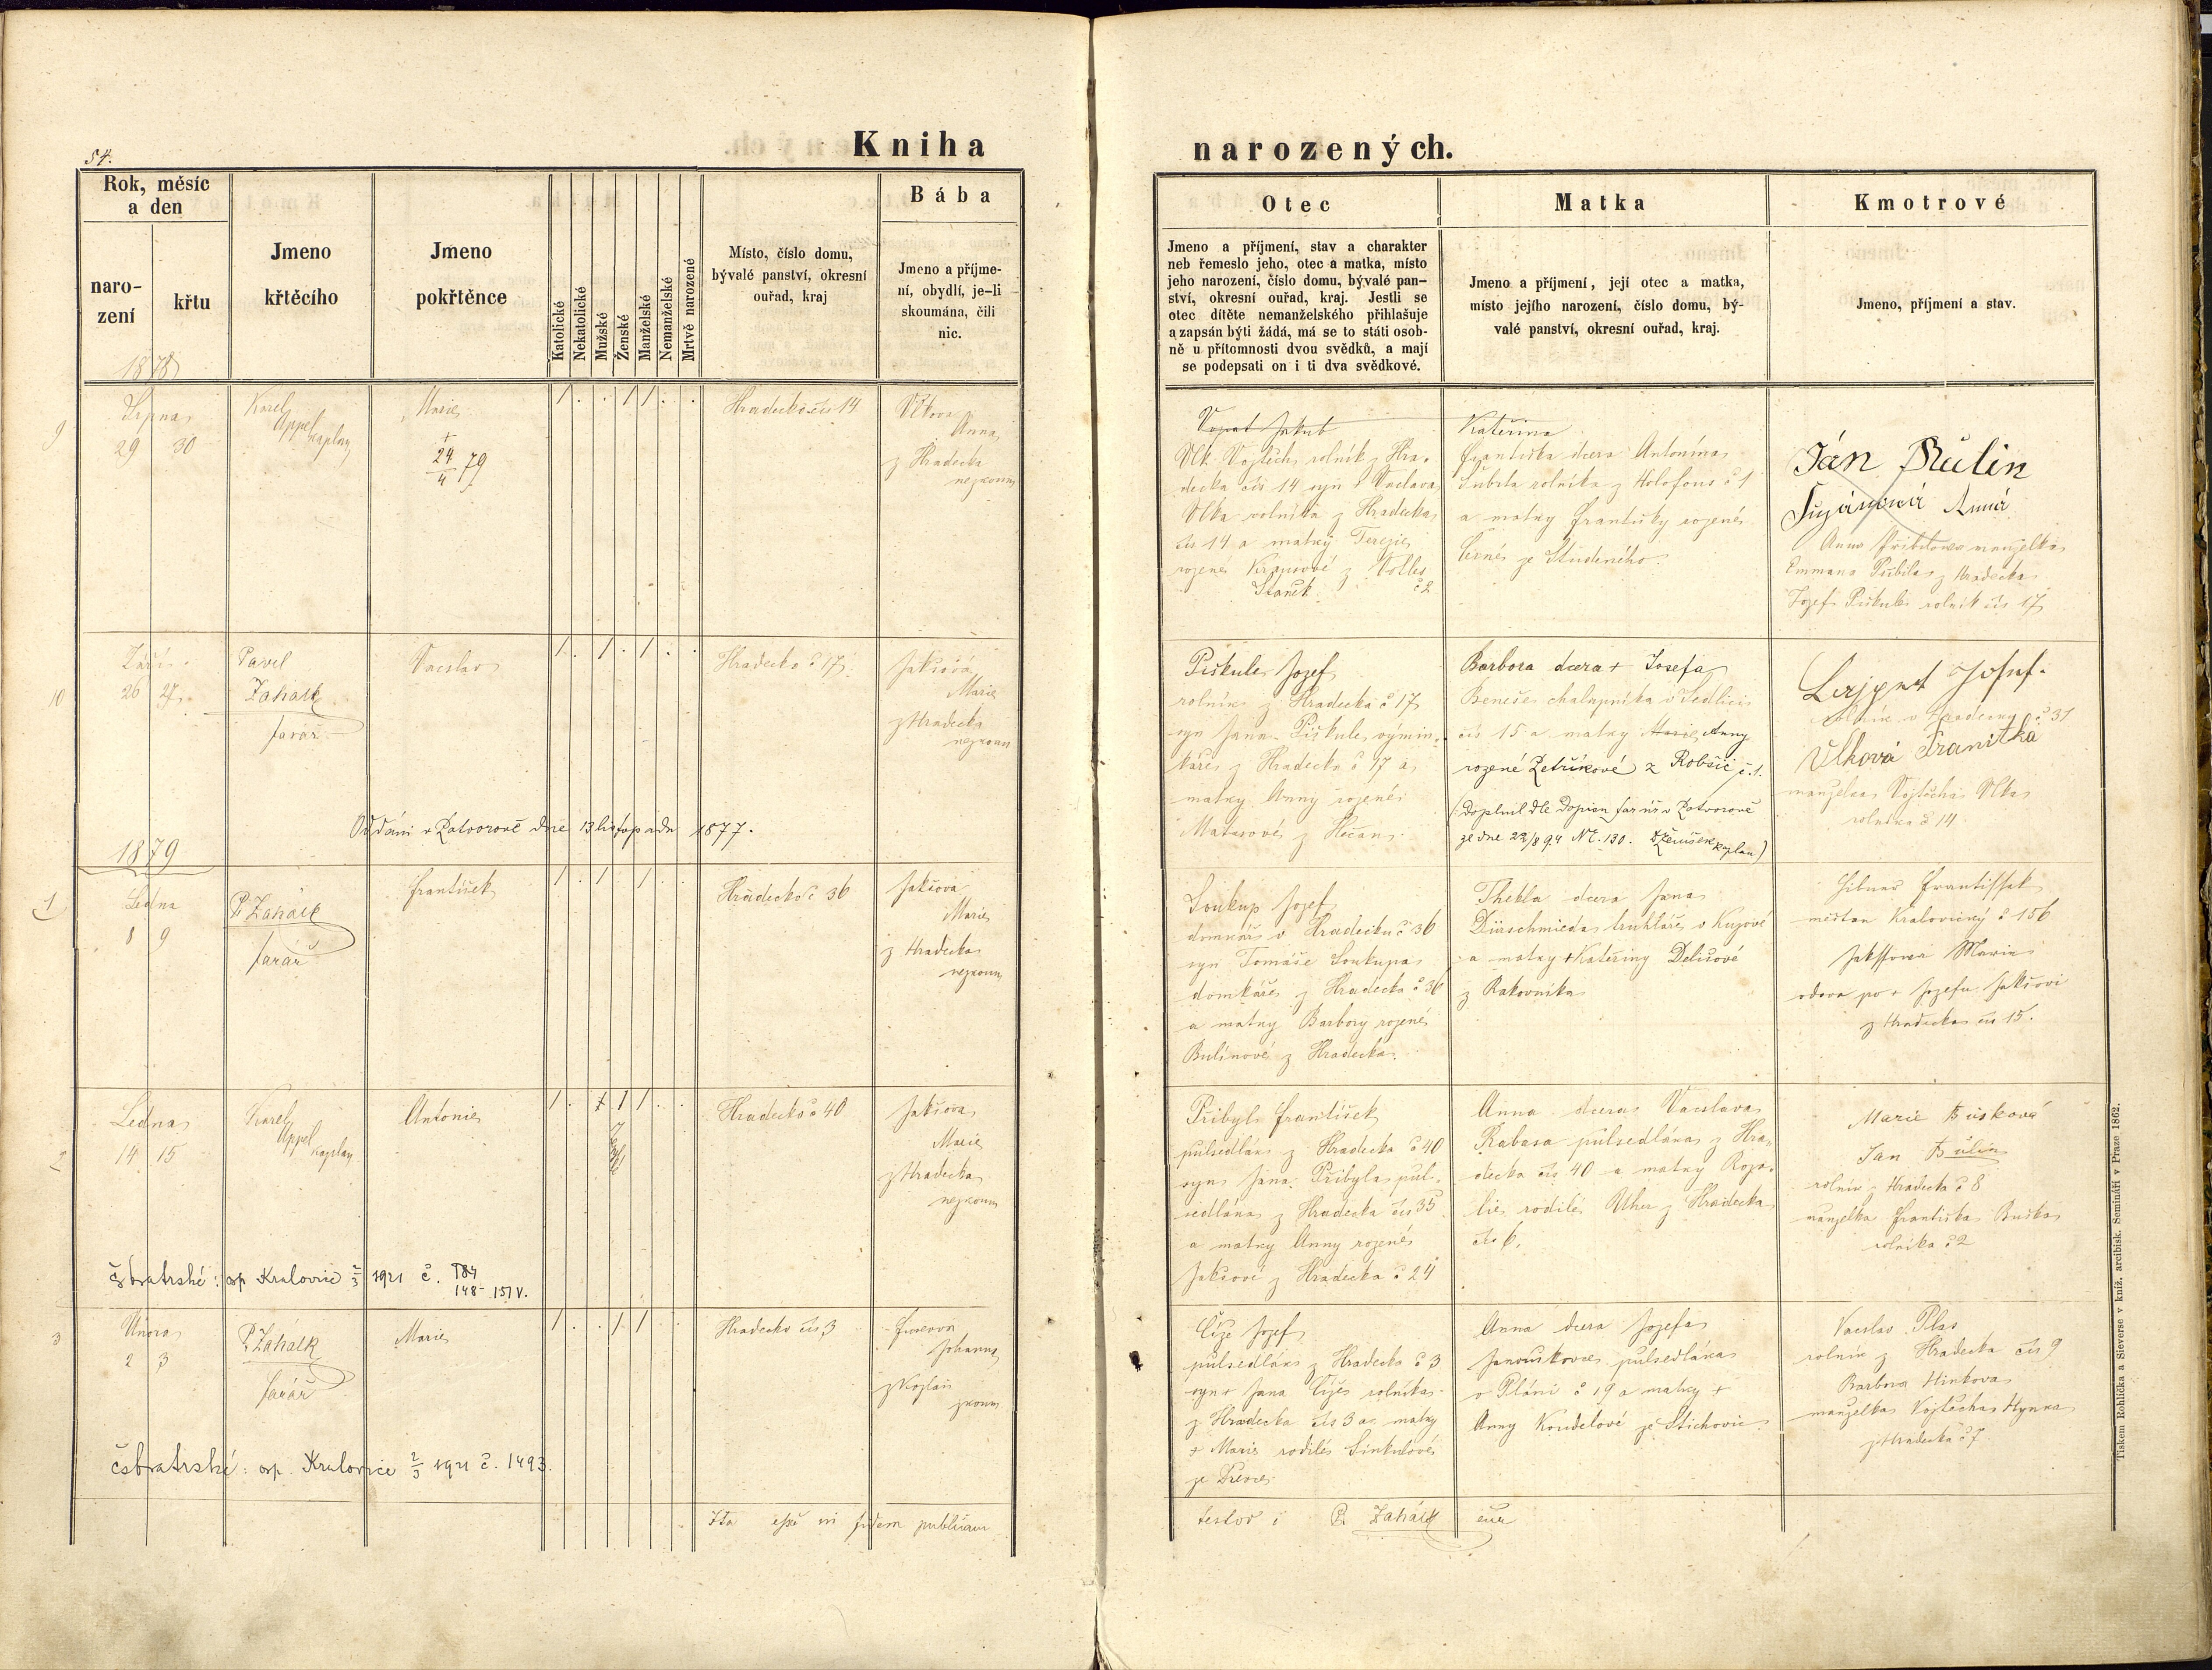 54.
Kniha
narozených.
Rok, měsíc
a den
naro-
zení
křtu
1878
Jmeno
křtěcího
Jmeno
pokřtěnce
Katolické
Nekatolické
Mužské
Ženské
Manželské
Nemanželské
Mrtvě narozené
Místo, číslo domu,
bývalé panství, okresní
ouřad, kraj
Bába
Jmeno a příjme-
ní, obydlí, je-li
skoumána, čili
nic.
Otec
Jmeno a příjmení, stav a charakter
neb řemeslo jeho, otec a matka, místo
jeho narození, číslo domu, bývalé pan-
ství, okresní ouřad, kraj. Jestli se
otec dítěte nemanželského přihlašuje
a zapsán býti žádá, má se to státi osob-
ně u přítomnosti dvou svědků, a mají
se podepsati on i ti dva svědkové.
Matka
Jmeno a příjmení, její otec a matka,
místo jejího narození, číslo domu, bý-
valé panství, okresní ouřad, kraj.
Kmotrové
Jmeno, příjmení a stav.
9
Srpna
29 30
Karel
Appel
kaplan
Marie
+
24
4 79
1 . . 1 1 . .
Hradecko čís 14
Vlkova
Anna
z Hradecka
nezkoum
Jakub
Vlk Vojtěch rolník z Hra-
decka čís 14 syn Vaclava
Vlka rolníka z Hradecka
čís 14 a matky Terezie
rozené Krausové z
č 2
Kateřina
Františka dcera Antonína
Šubrta rolníka z Holofous č 1
a matky Františky rozené
Černé ze Studeného.
Ján Bulin
Anna
Anna Přibilova manželka
Emmana Přibila z Hradecka
Jozef Piškule rolník čís 17
10
Září
26 27
Pavel
Zahálk
farář
Vacslav
1 . 1 . 1 . .
Hradecko č 17
Jakšová
Marie
z Hradecka
nezkoum
Piškule Jozef
rolník z Hradecka č 17
syn Jana Piškule výmin-
káře z Hradecka č 17 a
matky Anny rozené
z Hlučan
Barbora dcera + Josefa
Beneše chalupníka v Sedlici
čís 15 a matky Marie Anny
rozené Petříkové z Robčic č. 1.
(Doplnil dle Dopisu far. úř. v Potvorově
ze dne 22/8 94 Nr. 130. kaplan)
Josef
rolník v Hradecku č 31
Vlková Franitka
manželka Vojtěcha Vlka
rolníka č 14
Oddáni v Potvorově dne 13 listopadu 1877.
1879
1
Ledna
8 9
P. Zahálk
farář
František
1 . 1 . 1 . .
Hradecko č 36
Jakšova
Marie
z Hradecka
nezkoum
Soukup Jozef
domkář v Hradecku č 36
syn Tomáše Soukupa
domkáře z Hradecka č 36
a matky Barbory rozené
Bulínové z Hradecka.
Thekla dcera Jana
Dürschmieda truhláře v
a matky + Kateřiny Delišové
z Rakovníka
Frantissek
měšťan Kralovický č 156
Jakssowa Marie
vdova po + Jozefu Jakšovi
z Hradecka čís 15.
2
Ledna
14 15
Karel
Appel
kaplan
Antonie
1 . 1 1 1 . .
Hradecko č 40
Jakšova
Marie
z Hradecka
nezkoum
Přibyl František
půlsedlák z Hradecka č 40
syn Jana Přibyla půl-
sedlána z Hradecka čís 35
a matky Anny rozené
Jakšové z Hradecka č 24
Anna dcera Vacslava
Rabasa půlsedlána z Hra-
decka čís 40 a matky Roza-
lie rodilé Uher z Hradecka
čís 6.
Marie Bušková
Jan Bulin
rolník z Hradecka č 8
manželka Františka Buška
rolníka č 2
čsbratrské: osp Kralovice 2/3 1921 č. 184
148-151 V.
3
Února
2 3
P. Zahálk
farář
Marie
1 . . 1 1 . .
Hradecko čís 3
Johanna
z Kožlan
zkoum
Číže Jozef
půlsedlák z Hradecka č 3
syn + Jana Číže rolníka
z Hradecka čís 3 a matky
+ Marie rodilé Šinkulové
ze Dřevce
Anna dcera Jozefa
Janouškovce půlsedlána
v Pláni č 19 a matky +
Anny Koudelové ze Štichovic
Vacslav Plas
rolník z Hradecka čís 9
Barbora Hinkova
manželka Vojtěcha Hynka
z Hradecka č 7.
čsbratrské: osp. Kralovice 2/3 1921 č. 1493.
Ita esse in fidem publicam
testor P. Zahálk cur
Tiskem Rohlíčka a Sieverse v kníž. arcibisk. Semináři v Praze 1862.